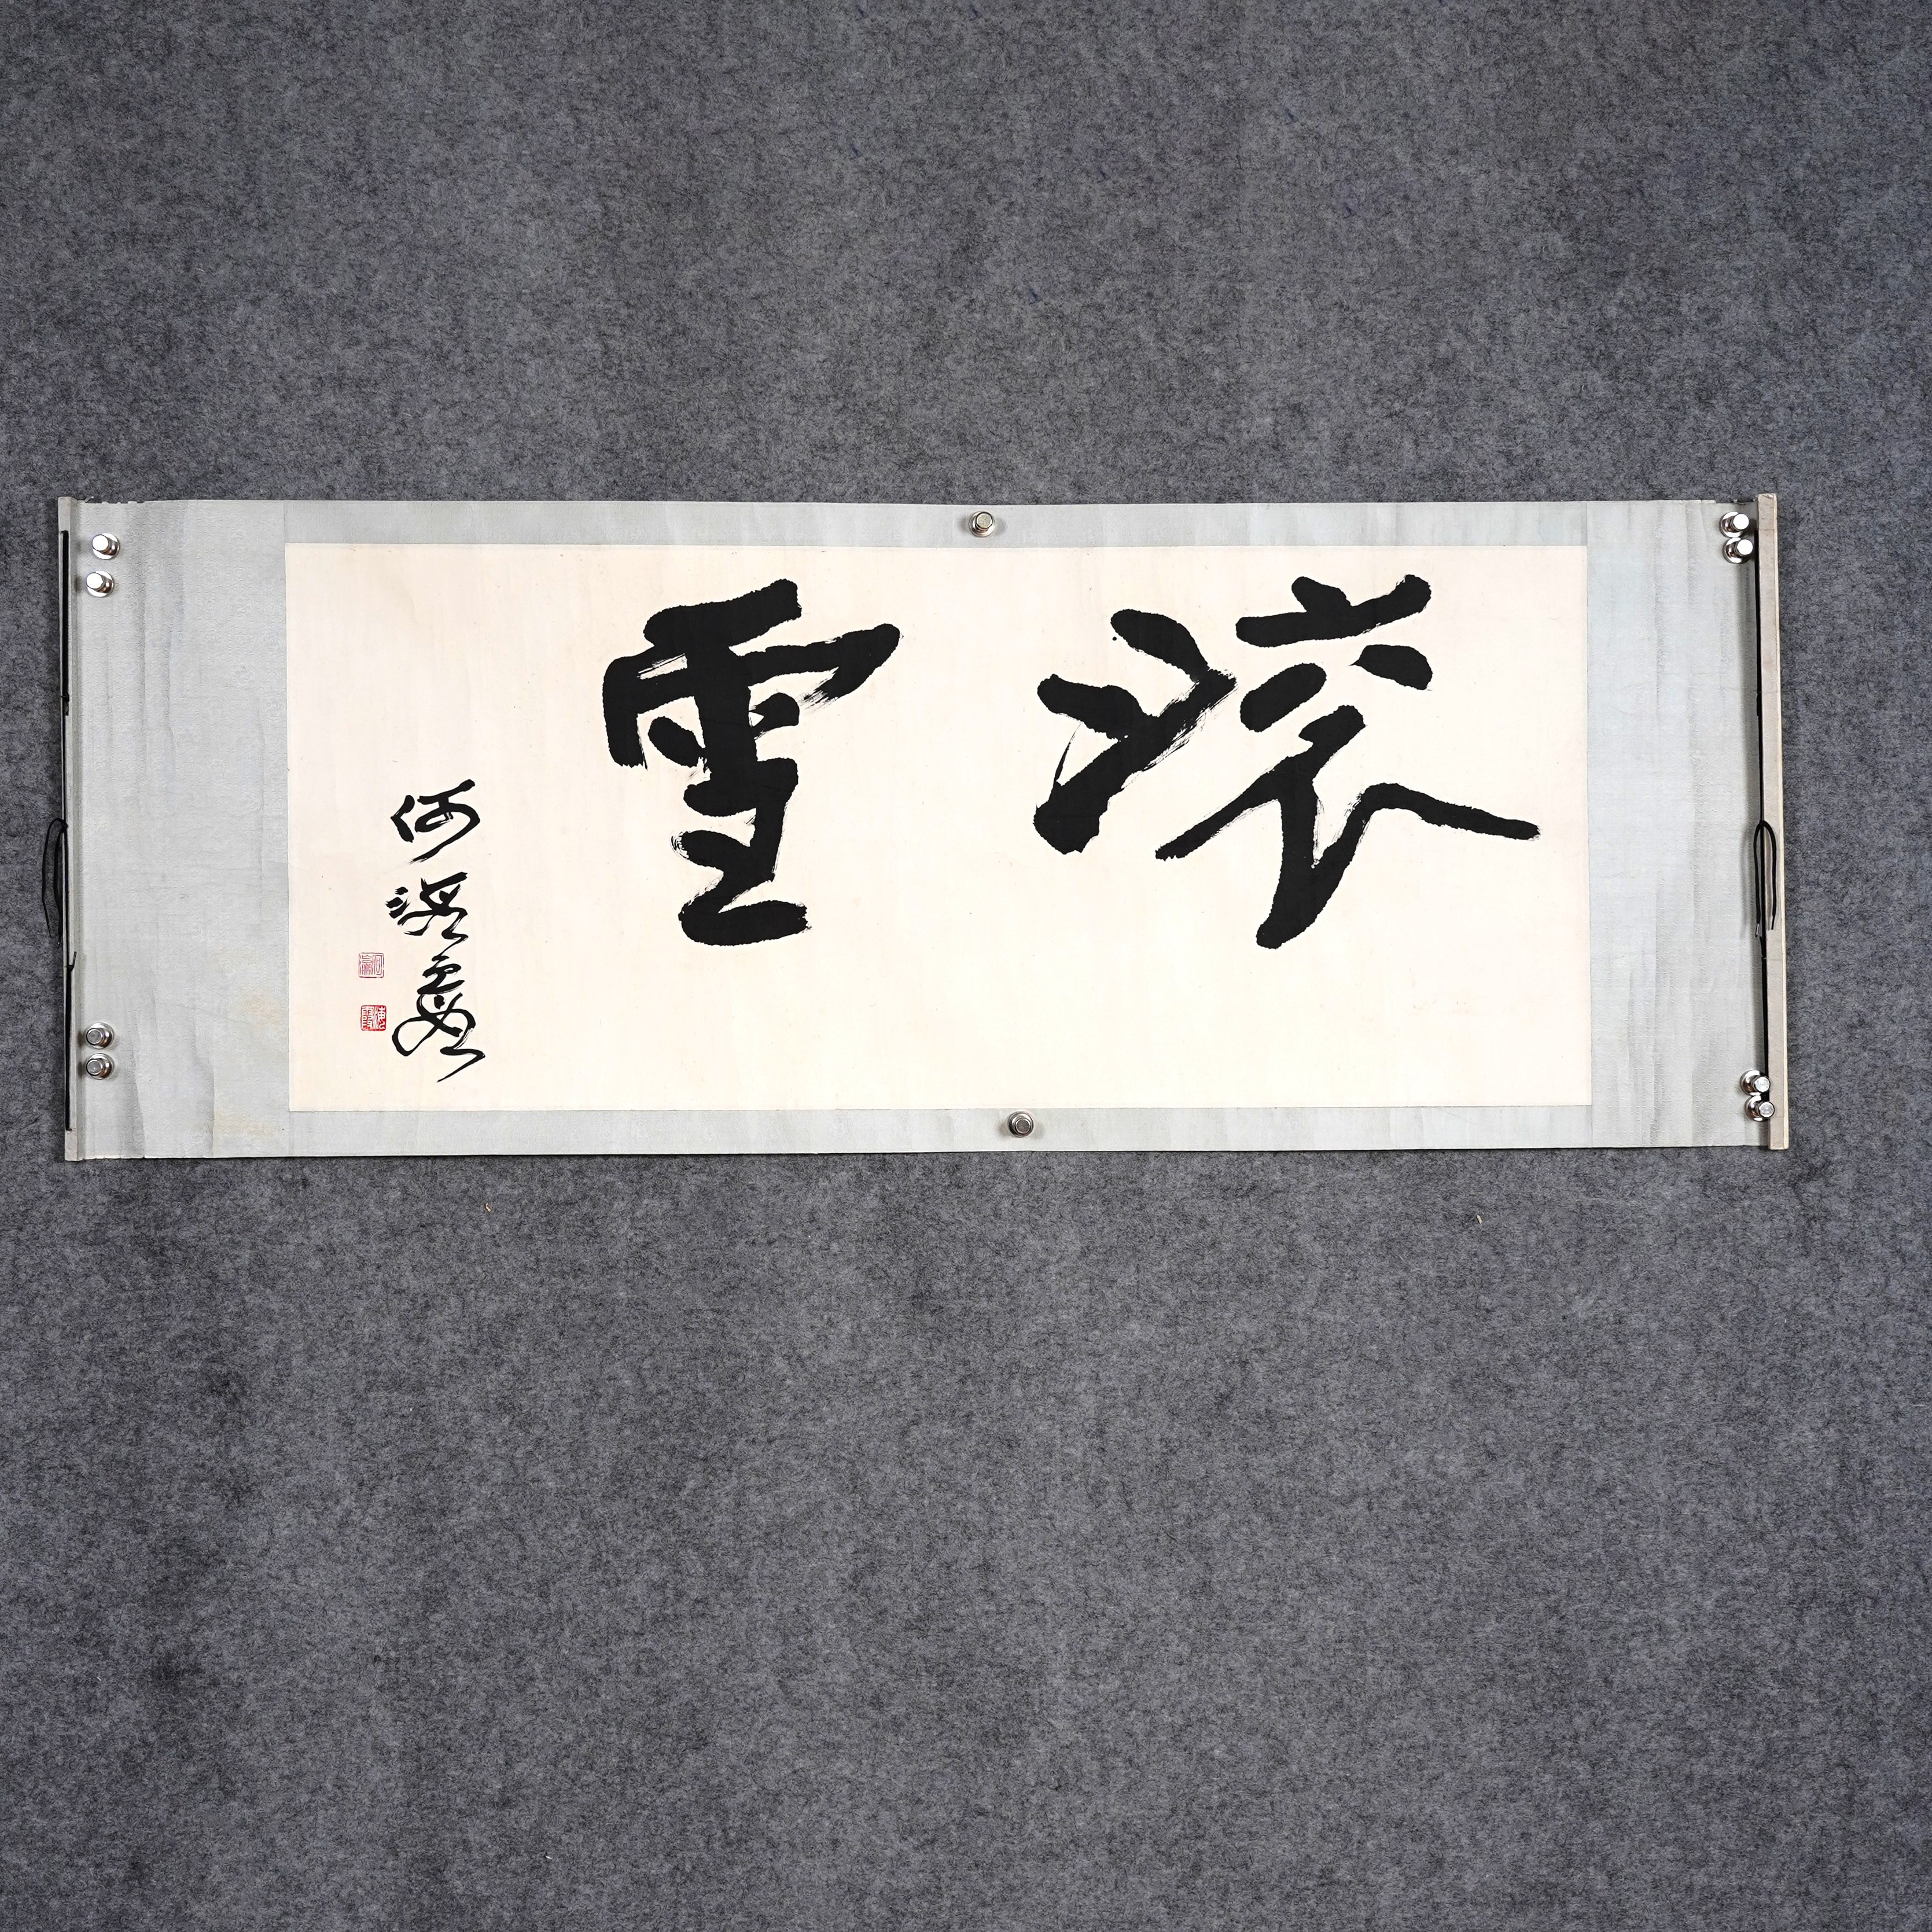 滾雪
何海霞